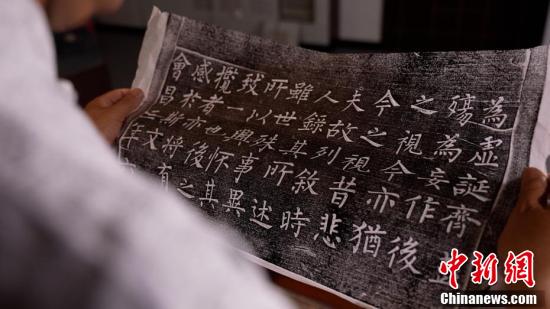 為虛誕齊
殤為妄作後
之視今亦猶
今之視昔悲
夫故列敘時
人錄其所述
雖世殊事異
所以興懷其
致一也後之
攬者亦將有
感於斯文
會昌三年
中新网
Chinanews.com